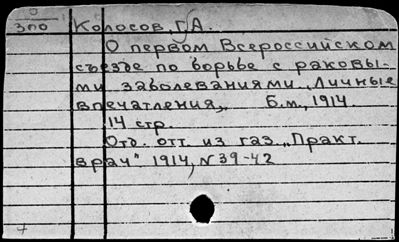 0
3по Колосов Г.А.
О первом Всероссийском
съезде по борьбе с раковы-
ми заболеваниями. Личные
впечатления,. Б.м., 1914.
14 стр.
Отд. отт. из газ. „Практ.
врач" 1914, N 39-42